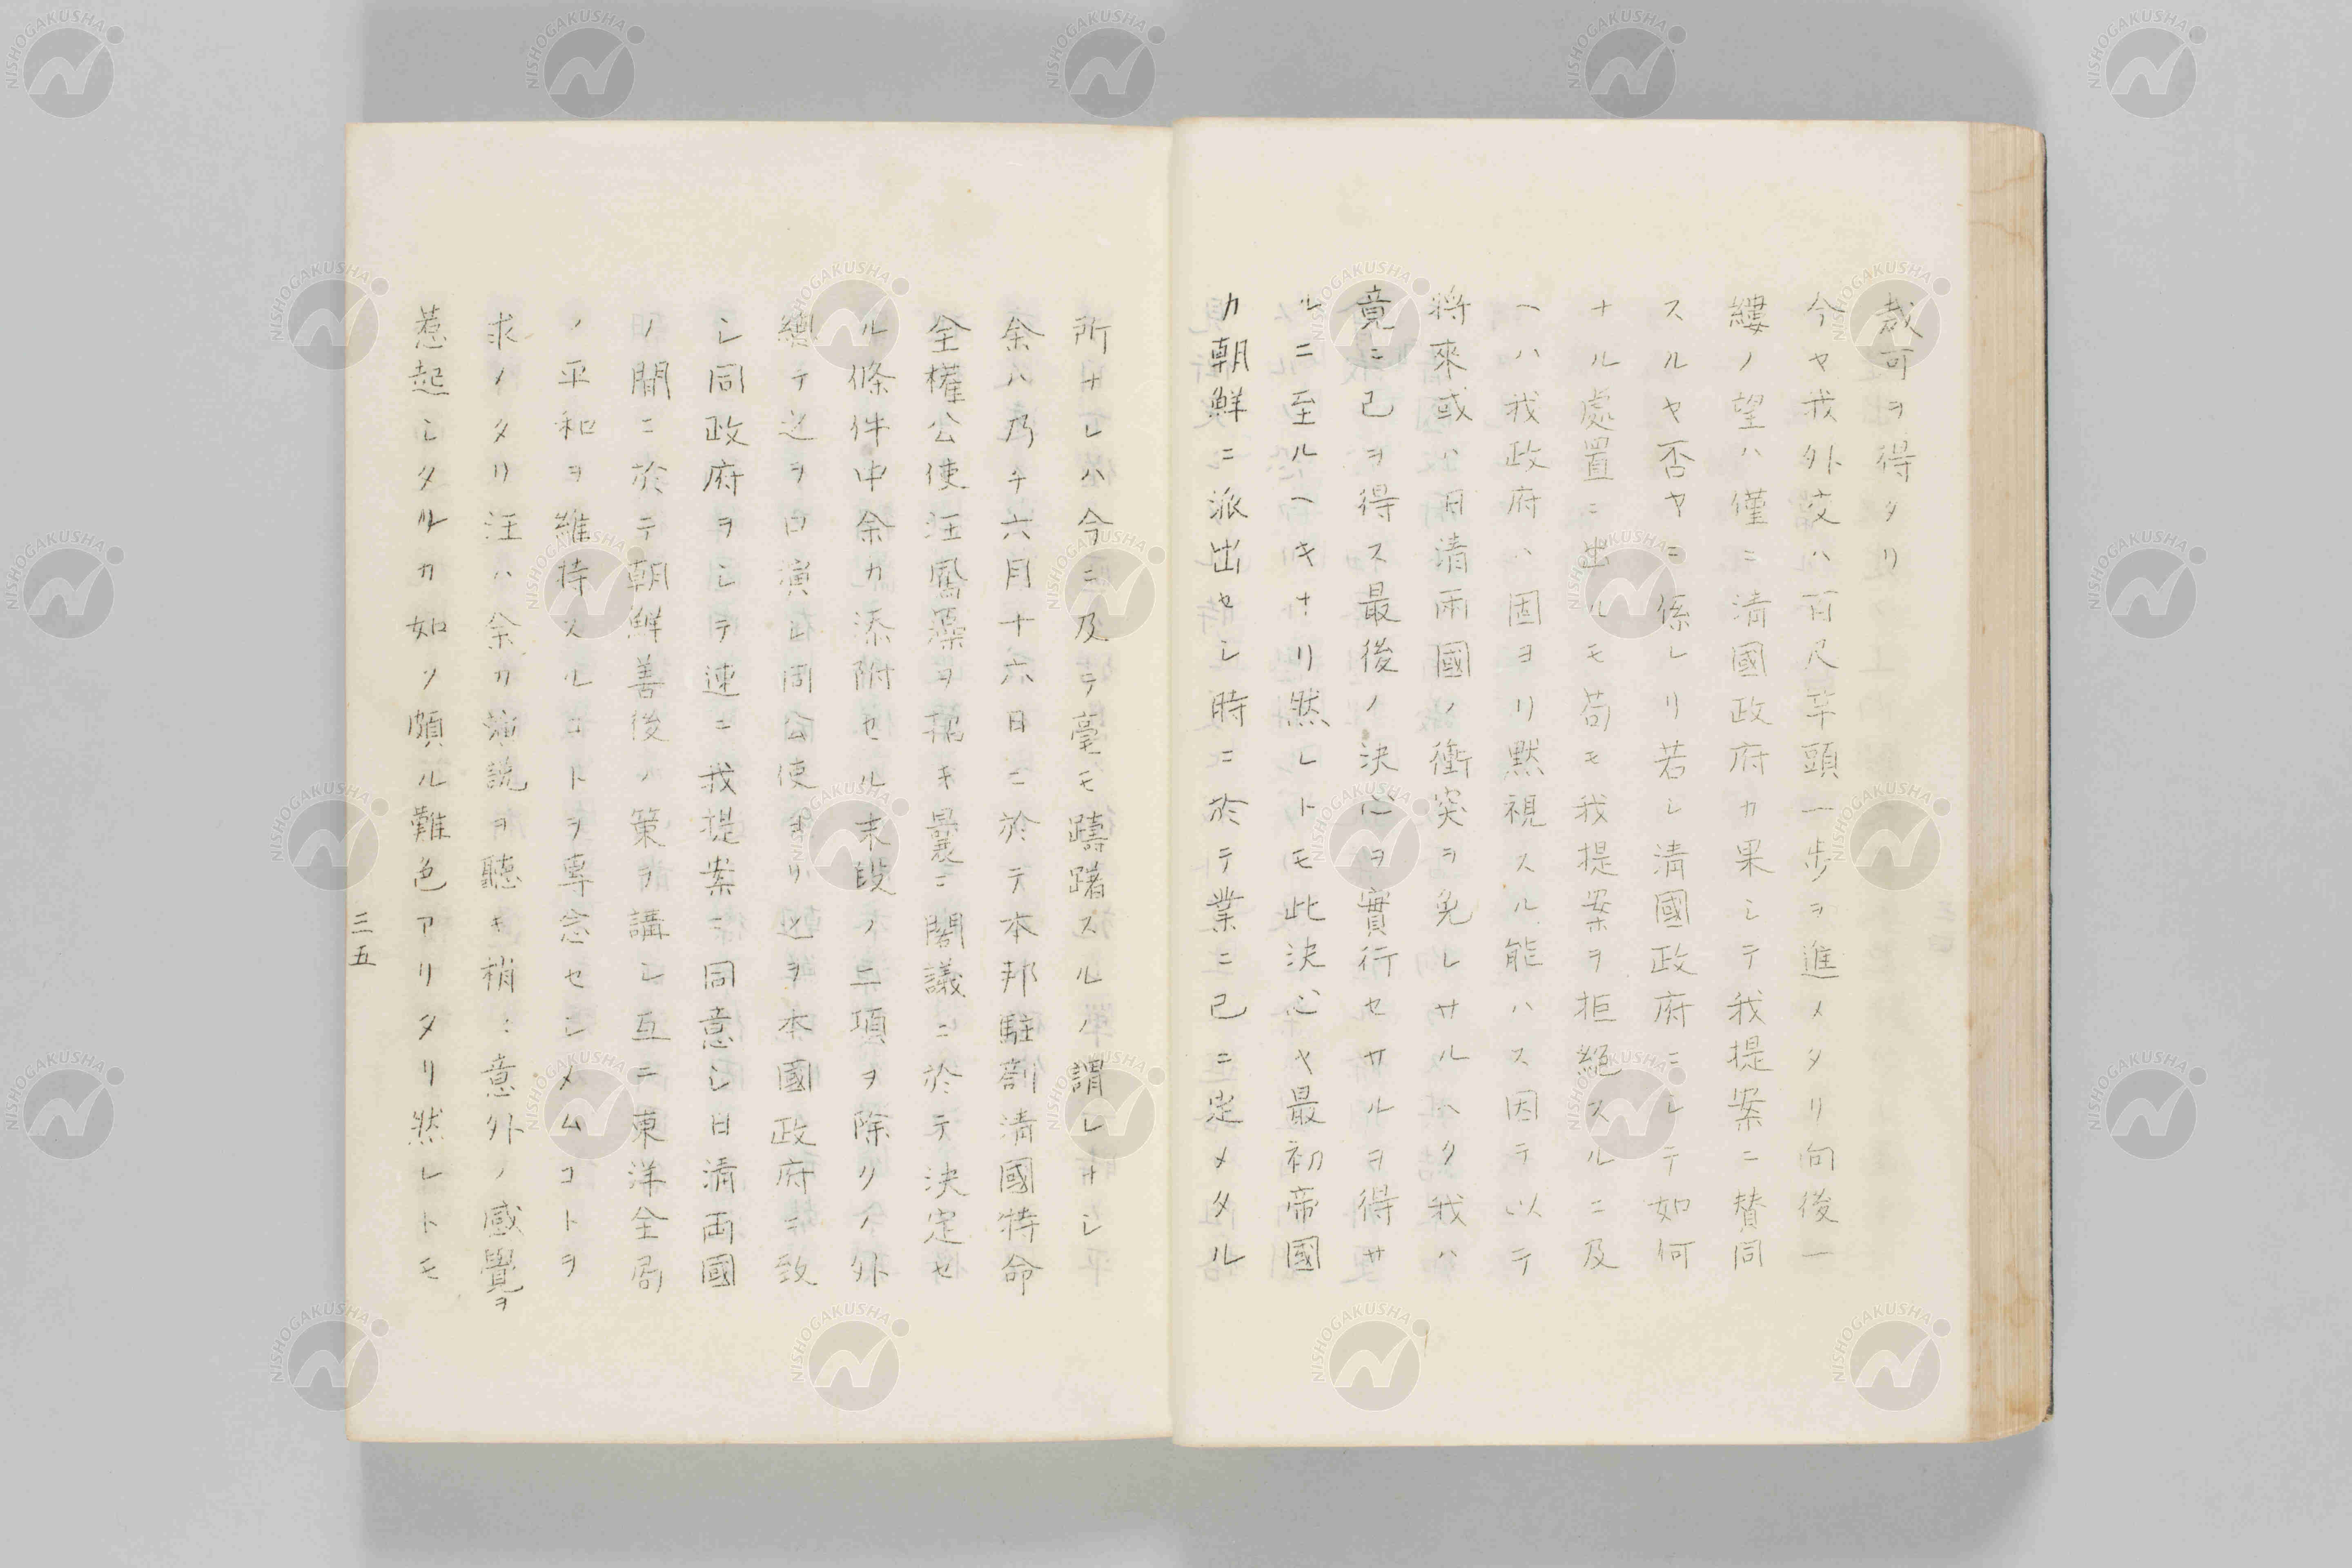 裁可ヲ得タリ
今ヤ我外交ハ百尺竿頭一歩ヲ進メタリ向後一
縷ノ望ハ僅ニ清國政府カ果シテ我提案ニ賛同
スルヤ否ヤニ係レリ若シ清國政府ニシテ如何
ナル處置ニ出ルモ苟モ我提案ヲ拒絕スルニ及
ヘハ我政府ハ固ヨリ黙視スル能ハス因テ以テ
将來或ハ日清兩國ノ衝突ヲ免レサルヘク我ハ
竟ニ已ヲ得ス最後ノ決心ヲ實行セサルヲ得サ
ルニ至ルヘキナリ然レトモ此決心ヤ最初帝國
カ朝鮮ニ派出セシ時ニ於テ業ニ已ニ定メタル
所ナレハ今ニ及テ毫モ躊躇スルノ謂レナシ
余ハ乃チ六月十六日ニ於テ本邦駐劄清國特命
全權公使汪鳳藻ヲ招キ曩ニ閣議ニ於テ決定セ
ル條件中余カ添附セル末段ノ二項ヲ除クノ外
總テ之ヲ口演シ同公使ヨリ之ヲ本國政府ニ致
シ同政府ヲシテ速ニ我提案ニ同意シ日清両國
ノ間ニ於テ朝鮮善後ノ策ヲ講シ互ニ東洋全局
ノ平和ヲ維持スルコトヲ專念セシメムコトヲ
求メタリ汪ハ余カ演説ヲ聽キ稍〻意外ノ感覺ヲ
惹起シタルカ如ク頗ル難色アリタリ然レトモ
三五
NISHOGAKUSHA